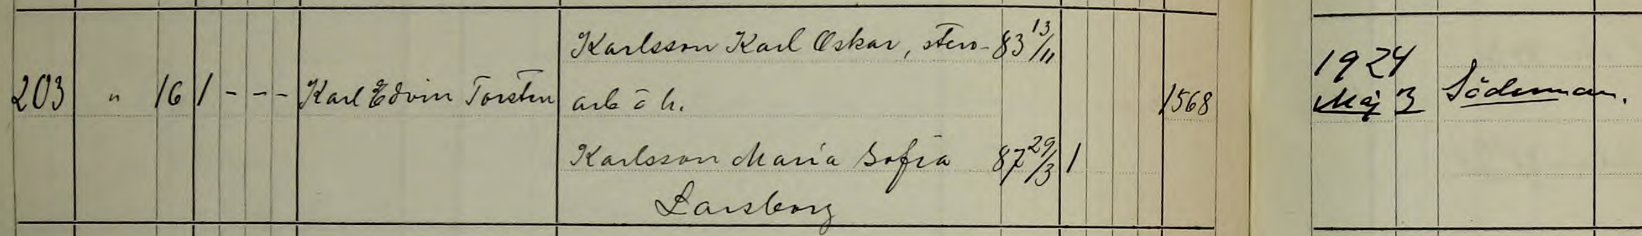 Karlsson Karl Oskar, sten- 83 13/11
203 " 16 1 - - - Karl Edvin Torsten arb o h. 1568
Karlsson Maria Sofia 87 29/3 1
Larsborg
1924
Maj 3 Söderman.